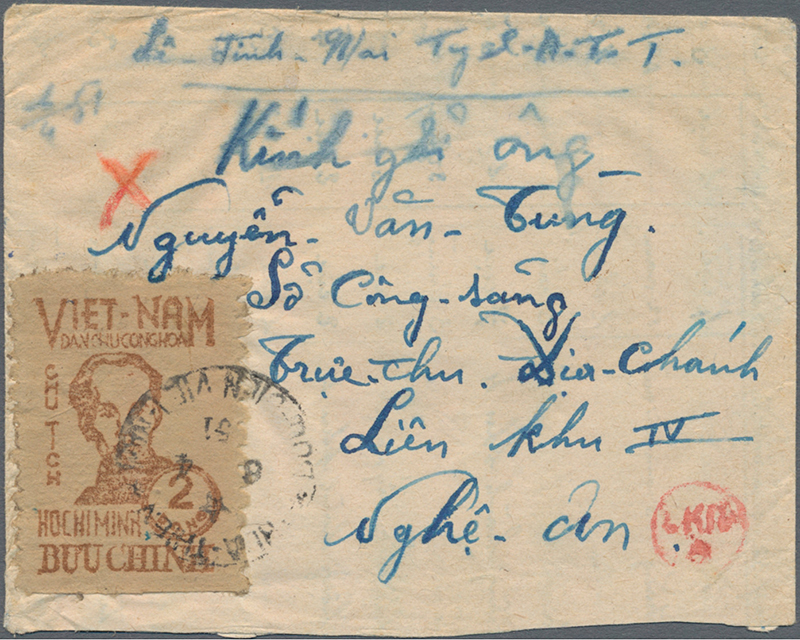 Lê - Tính - Mai Ty
51
Kính gửi ông
Nguyễn - Văn - Tung.
Sổ Công - sảng
Trực - thu . Địa - Chánh
Liên khu IV
Nghệ - an .
VIET-NAM
DAN CHU CONG HOA
CHU TCH
2
HO CHI MINH
BUU CHINH
8 4
51